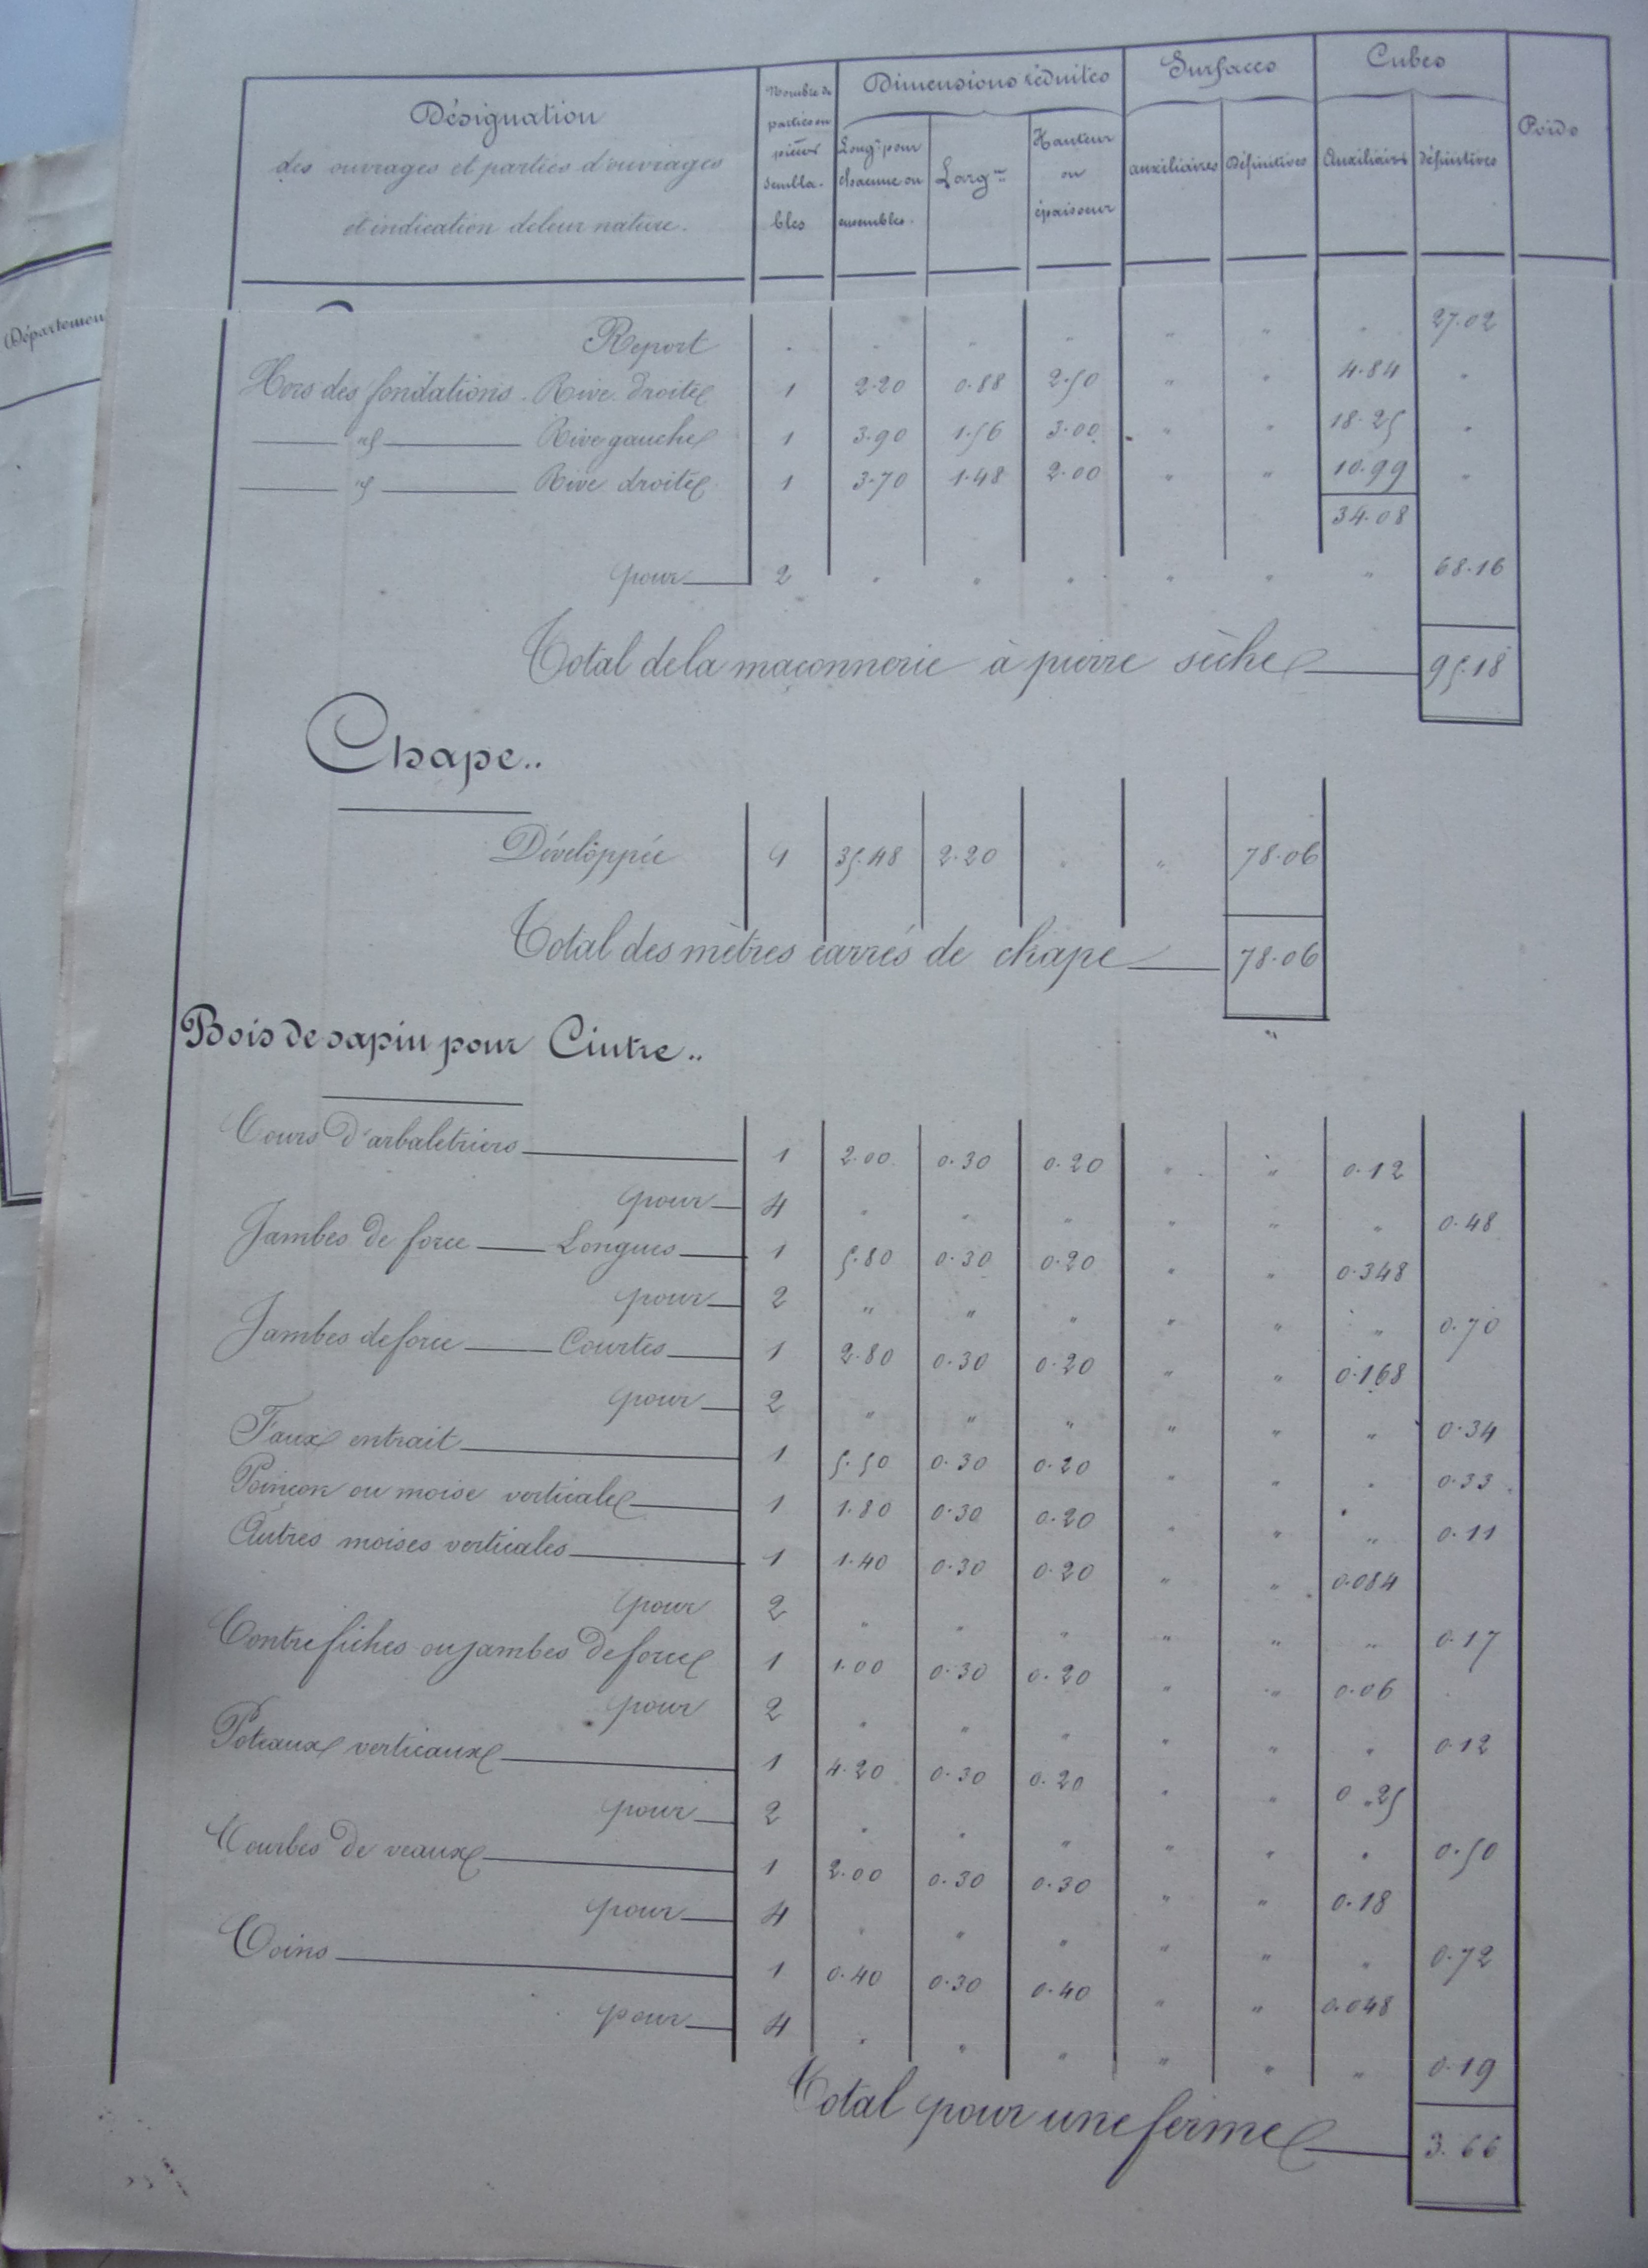 Département
Désignation
des ouvrages et parties d'ouvrages
et indication de leur nature.
Nombre de
parties ou
pièces
sembla-
bles
Dimensions réduites
Longr pour
chacune ou
ensembles.
Largr
Hauteur
ou
épaisseur
Surfaces
auxiliaires
Définitives
Cubes
Auxiliaires
définitives
Poids
Report " " " " " " " 27.02
Hors des fondations. Rive droite 1 2.20 0.88 2.50 " " 4.84 "
— id — Rive gauche 1 3.90 1.56 3.00 " " 18.25 "
— id — Rive droite 1 3.70 1.48 2.00 " " 10.99 "
34.08
pour 2 " " " " " " 68.16
Total de la maçonnerie à pierre sèche 95.18
Chape..
Développée 1 35.48 2.20 " " 78.06
Total des mètres carrés de chape 78.06
"
Bois de sapin pour Cintre..
Cours d'arbaletriers 1 2.00 0.30 0.20 " " 0.12
pour 4 " " " " " " 0.48
Jambes de force — Longues 1 5.80 0.30 0.20 " " 0.348
pour 2 " " " " " " 0.70
Jambes de force — Courtes 1 2.80 0.30 0.20 " " 0.168
pour 2 " " " " " " 0.34
Faux entrait 1 5.50 0.30 0.20 " " " 0.33
Poinçon ou moise verticale 1 1.80 0.30 0.20 " " " 0.11
Autres moises verticales 1 1.40 0.30 0.20 " " 0.084
pour 2 " " " " " " 0.17
Contrefiches ou jambes de force 1 1.00 0.30 0.20 " " 0.06
pour 2 " " " " " " 0.12
Poteaux verticaux 1 4.20 0.30 0.20 " " 0.25
pour 2 " " " " " " 0.50
Courbes de veaux 1 2.00 0.30 0.30 " " 0.18
pour 4 " " " " " " 0.72
Coins 1 0.40 0.30 0.40 " " 0.048
pour 4 " " " " " " 0.19
Total pour une ferme 3.66